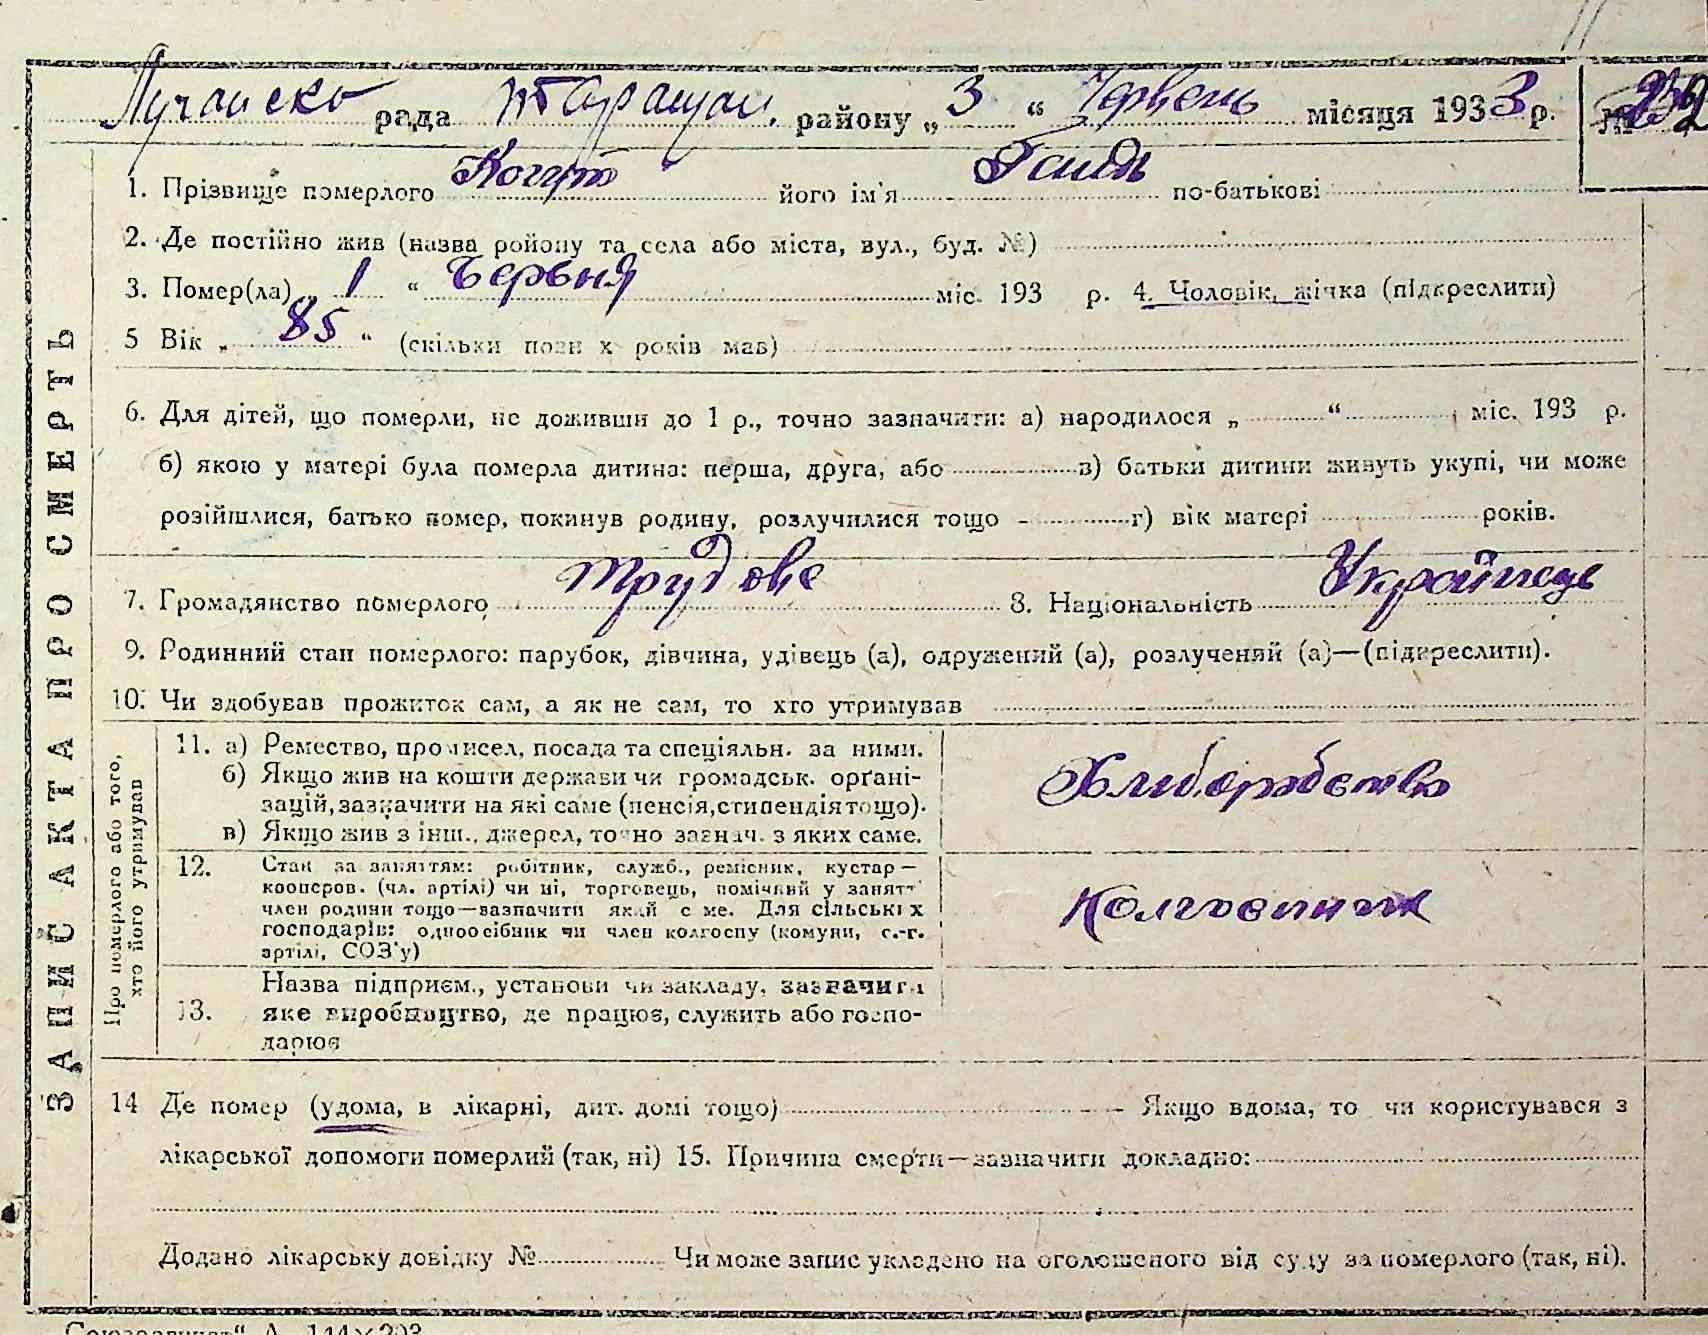 Лучанско рада Таращан. району „ 3 “ Червень місяця 1933 р. № 232
1. Прізвище померлого Когут його ім'я по-батькові
2. Де постійно жив (назва району та села або міста, вул., буд. №)
3. Помер(ла) 1 “ Червня міс. 193 р. 4. Чоловік, жінка (підкреслити)
5 Вік „ 85 “ (скільки повних років мав)
6. Для дітей, що померли, не доживши до 1 р., точно зазначити: а) народилося „ “ міс. 193 р.
б) якою у матері була померла дитина: перша, друга, або в) батьки дитини живуть укупі, чи може
розійшлися, батько помер, покинув родину, розлучилися тощо - г) вік матері років.
7. Громадянство померлого трудове 8. Національність Українець
9. Родинний стан померлого: парубок, дівчина, удівець (а), одружений (а), розлучений (а)—(підкреслити).
10. Чи здобував прожиток сам, а як не сам, то хто утримував
11. а) Ремество, промисел, посада та спеціяльн. за ними.
б) Якщо жив на кошти держави чи громадськ. орґані-
зацій, зазначити на які саме (пенсія, стипендія тощо).
в) Якщо жив з інш., джерел, точно зазнач. з яких саме.
Хлиборобство
12. Стан за заняттям: робітник, служб., ремісник, кустар —
кооперов. (чл. артілі) чи ні, торговець, помічний у занятті
член родини тощо—зазначити який саме. Для сільських
господарів: одноосібник чи член колгоспу (комуни, с.-г.
артілі, СОЗ'у)
Колгоспник
Назва підприєм., установи чи закладу, зазначити
13. яке виробництво, де працює, служить або госпо-
дарює
14 Де помер (удома, в лікарні, дит. домі тощо) - Якщо вдома, то чи користувався з
лікарської допомоги померлий (так, ні) 15. Причина смерти—зазначити докладно:
Додано лікарську довідку № Чи може запис укладено на оголошеного від суду за померлого (так, ні).
ЗАПИС АКТА ПРО СМЕРТЬ
Про померлого або того,
хто його утримував